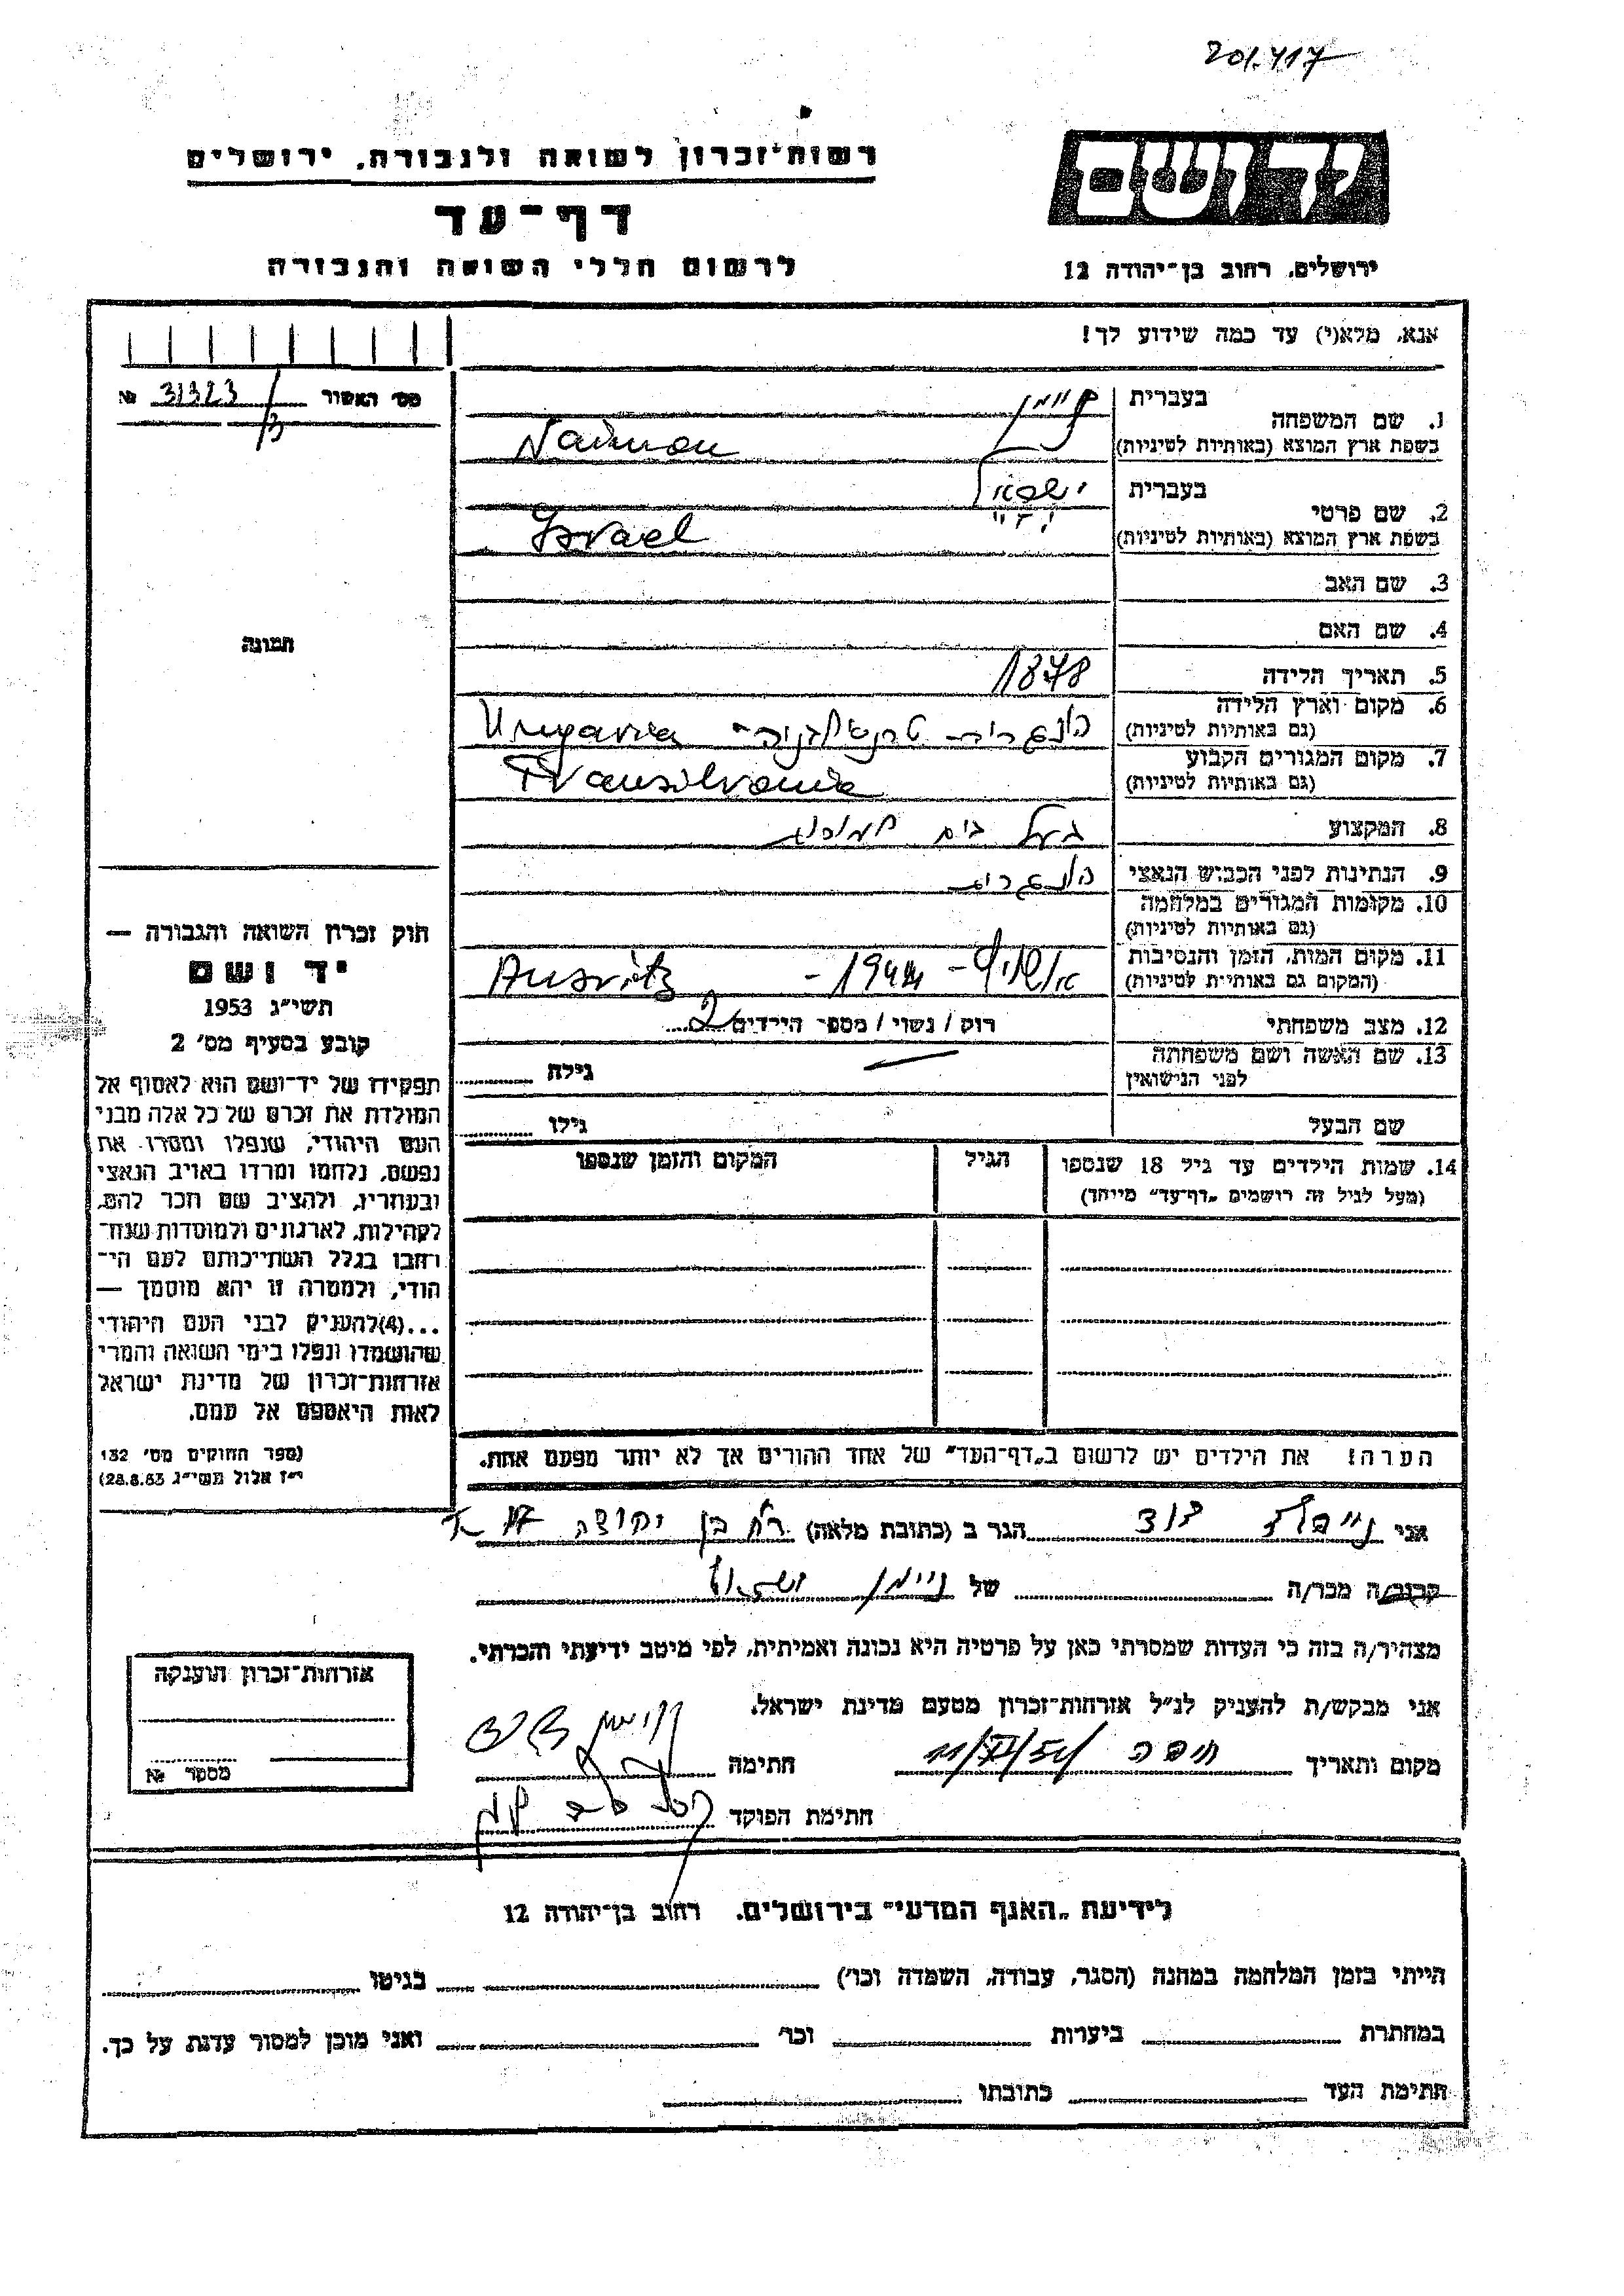 201.417
רשות־זכרון לשואה ולגבורה, ירושלים
יד ושם
דף־עד
לרשום חללי השואה והגבורה
ירושלים, רחוב בן־יהודה 12
אנא, מלא(י) עד כמה שידוע לך!
מס׳ האשור 31323 №
/3
1. שם המשפחה
בעברית ניימן
בשפת ארץ המוצא (באותיות לטיניות) Naiman
2. שם פרטי
בעברית ישראל
בשפת ארץ המוצא (באותיות לטיניות) Israel
3. שם האב
4. שם האם
תמונה
5. תאריך הלידה 1878
6. מקום וארץ הלידה
(גם באותיות לטיניות) הונגריה טרנסילבניה Ungaria
7. מקום המגורים הקבוע
(גם באותיות לטיניות) Transilvania
8. המקצוע בעל בית
9. הנתינות לפני הכבוש הנאצי הונגרית
10. מקומות המגורים במלחמה
(גם באותיות לטיניות)
11. מקום המות, הזמן והנסיבות
(המקום גם באותיות לטיניות) אושויץ - 1944 - Ausvitz
12. מצב משפחתי רוק / נשוי / מספר הילדים 2
13. שם האשה ושם משפחתה
לפני הנישואין
גילה
שם הבעל גילו
14. שמות הילדים עד גיל 18 שנספו הגיל המקום והזמן שנספו
(מעל לגיל זה רושמים „דף־עד״ מיוחד)
הערה! את הילדים יש לרשום ב„דף־העד״ של אחד ההורים אך לא יותר מפעם אחת.
חוק זכרון השואה והגבורה —
יד ושם
תשי״ג 1953
קובע בסעיף מס׳ 2
תפקידו של יד־ושם הוא לאסוף אל
המולדת את זכרם של כל אלה מבני
העם היהודי, שנפלו ומסרו את
נפשם, נלחמו ומרדו באויב הנאצי
ובעוזריו, ולהציב שם וזכר להם,
לקהילות, לארגונים ולמוסדות שנח־
רחבו בגלל השתייכותם לעם הי־
הודי, ולמטרה זו יהא מוסמך —
...(4)להעניק לבני העם היהודי
שהושמדו ונפלו בימי השואה והמרי
אזרחות־זכרון של מדינת ישראל
לאות היאספם אל עמם.
(ספר החוקים מס׳ 132
י״ז אלול תשי״ג 28.8.53)
אני דוד הגר ב (כתובת מלאה) רח׳ בן יהודה
קרוב/ה מכר/ה של ניימן ישראל
מצהיר/ה בזה כי העדות שמסרתי כאן על פרטיה היא נכונה ואמיתית, לפי מיטב ידיעתי והכרתי.
אני מבקש/ת להעניק לנ״ל אזרחות־זכרון מטעם מדינת ישראל.
מקום ותאריך חיפה חתימה
חתימת הפוקד
אזרחות־זכרון הוענקה
מספר №
לידיעת „האגף המדעי״ בירושלים, רחוב בן־יהודה 12
הייתי בזמן המלחמה במחנה (הסגר, עבודה, השמדה וכו׳) בגיטו
במחתרת ביערות וכו׳ ואני מוכן למסור עדות על כך.
חתימת העד כתובתו